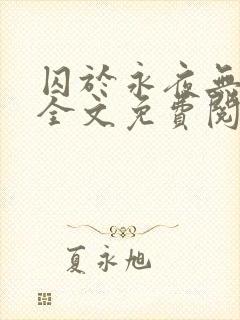 囚於永夜無
全文免費閱
夏永旭